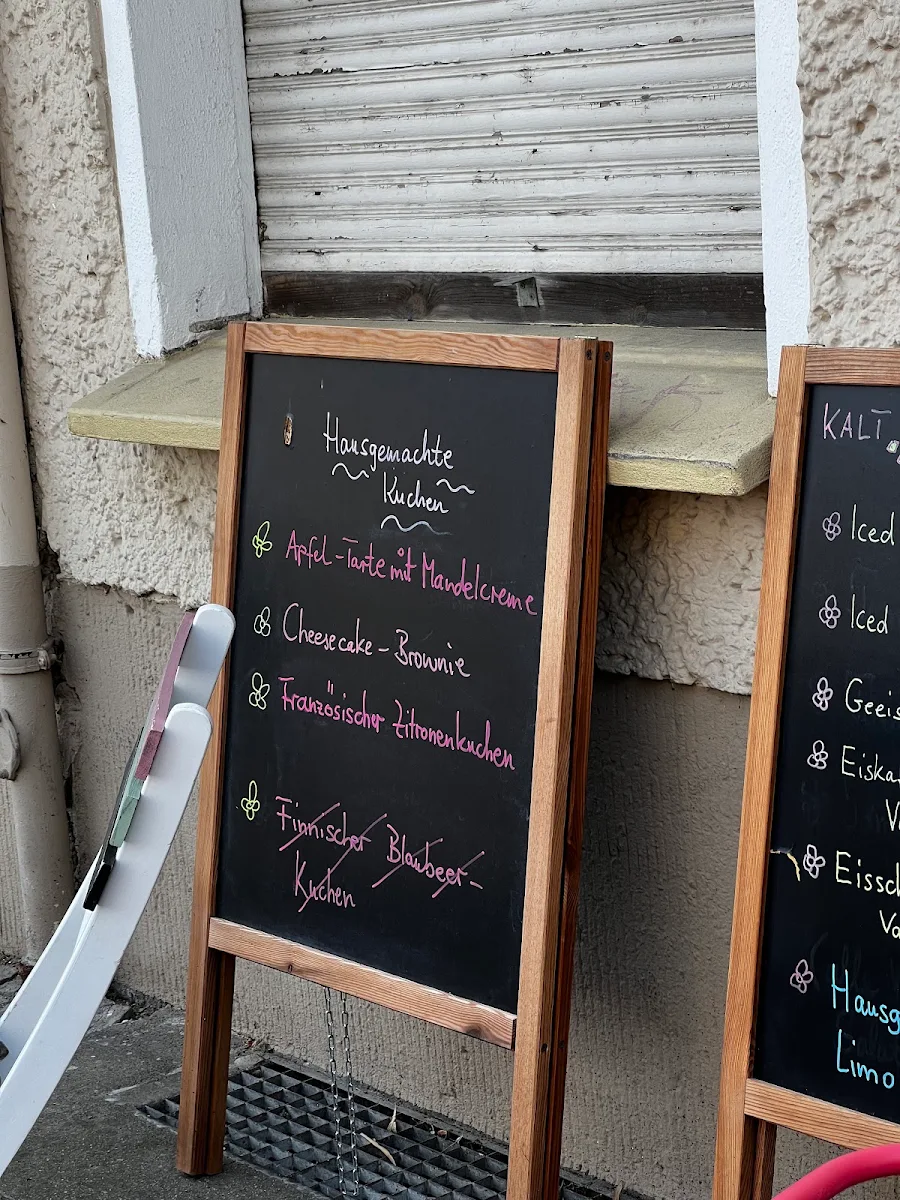 Hausgemachte
Kuchen
Apfel-Tarte mit Mandelcreme
Cheesecake-Brownie
Französischer Zitronenkuchen
Finnischer Blaubeer-
Kuchen
KALT
Iced
Iced
Geeis
Eiska
V
Eissc
Va
Hausg
Limo